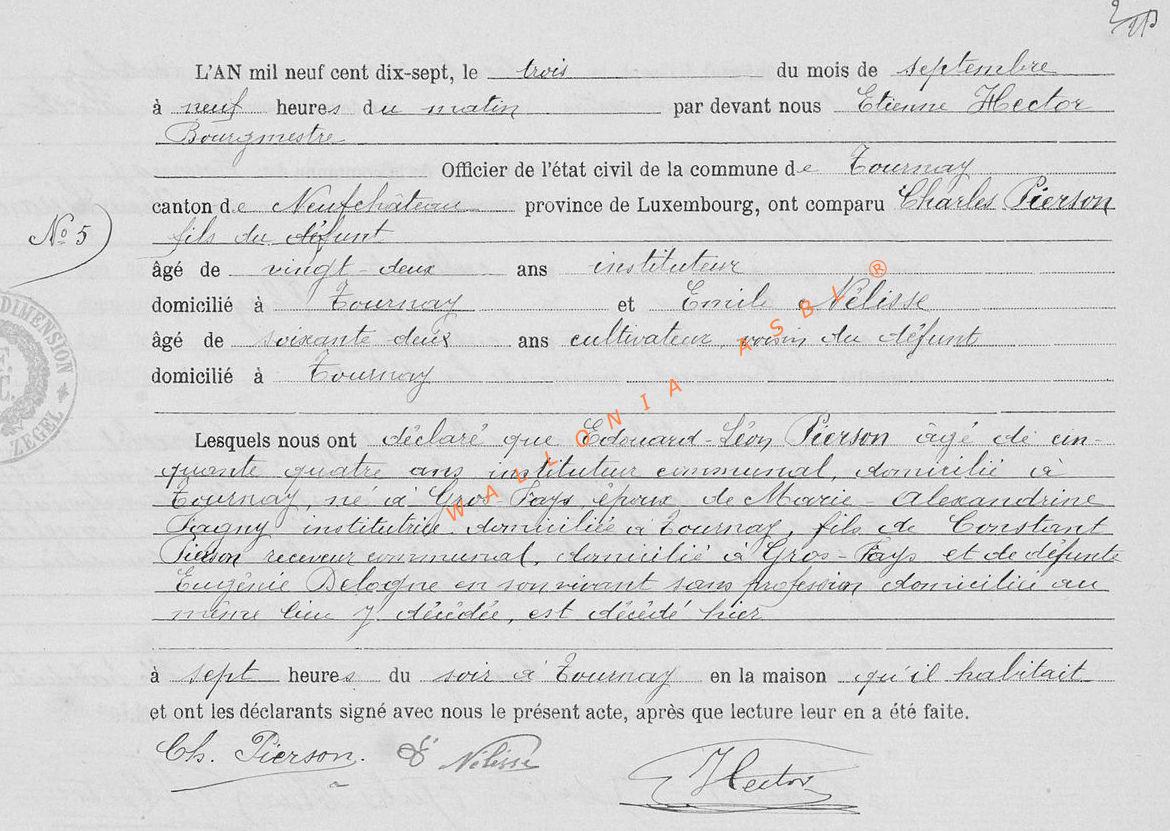 L'AN mil neuf cent dix-sept, le trois du mois de septembre
à neuf heures du matin par devant nous Etienne Hector
Bourgmestre
Officier de l'état civil de la commune de Tournay
canton de Neufchâteau province de Luxembourg, ont comparu Charles Pierson
No 5
fils du défunt
âgé de vingt-deux ans instituteur
domicilié à Tournay et Emile Nélisse
âgé de soixante deux ans cultivateur voisin du défunt
domicilié à Tournay
Lesquels nous ont déclaré que Edouard-Léon Pierson âgé de cin-
quante quatre ans instituteur communal, domicilié à
Tournay, né à Gros-Fays, époux de Marie Alexandrine
Fagny institutrice domiciliée à Tournay, fils de Constant
Pierson receveur communal, domicilié à Gros-Fays et de défunte
Eugénie Delogne en son vivant sans profession domiciliée au
même lieu y décédée, est décédé hier
à sept heures du soir à Tournay en la maison qu'il habitait
et ont les déclarants signé avec nous le présent acte, après que lecture leur en a été faite.
Ch. Pierson. E Nélisse
Hector
DIMENSION
ZEGEL
WALLONIA ASBL ®